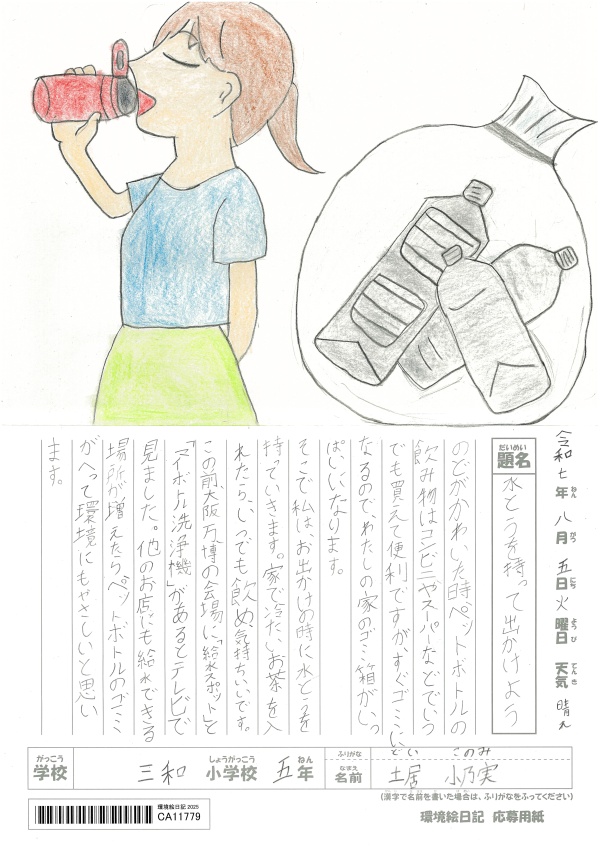 令和七年八月五日火曜日 天気 晴れ
ねん がつ にち ようび てんき
だいめい
題名 水とうを持って出かけよう
のどがかわいた時ペットボトルの
飲み物はコンビニやスーパーなどでいつ
でも買えて便利ですが、すぐゴミに
なるので、わたしの家のゴミ箱がいっ
ぱいになります。
そこで私は、お出かけの時に水とうを
持っていきます。家で冷たいお茶を入
れたら、いつでも飲め、気持ちいいです。
この前大阪万博の会場に、「給水スポット」と
「マイボトル洗浄機」があるとテレビで
見ました。他のお店にも給水できる
場所が増えたらペットボトルのゴミ
がへって環境にもやさしいと思い
ます。
がっこう しょうがっこう ねん
学校 三和 小学校 五年
ふりがな どい このみ
なまえ
名前 土居 小乃実
(漢字で名前を書いた場合は、ふりがなをふってください)
環境絵日記 2025
CA11779
環境絵日記 応募用紙